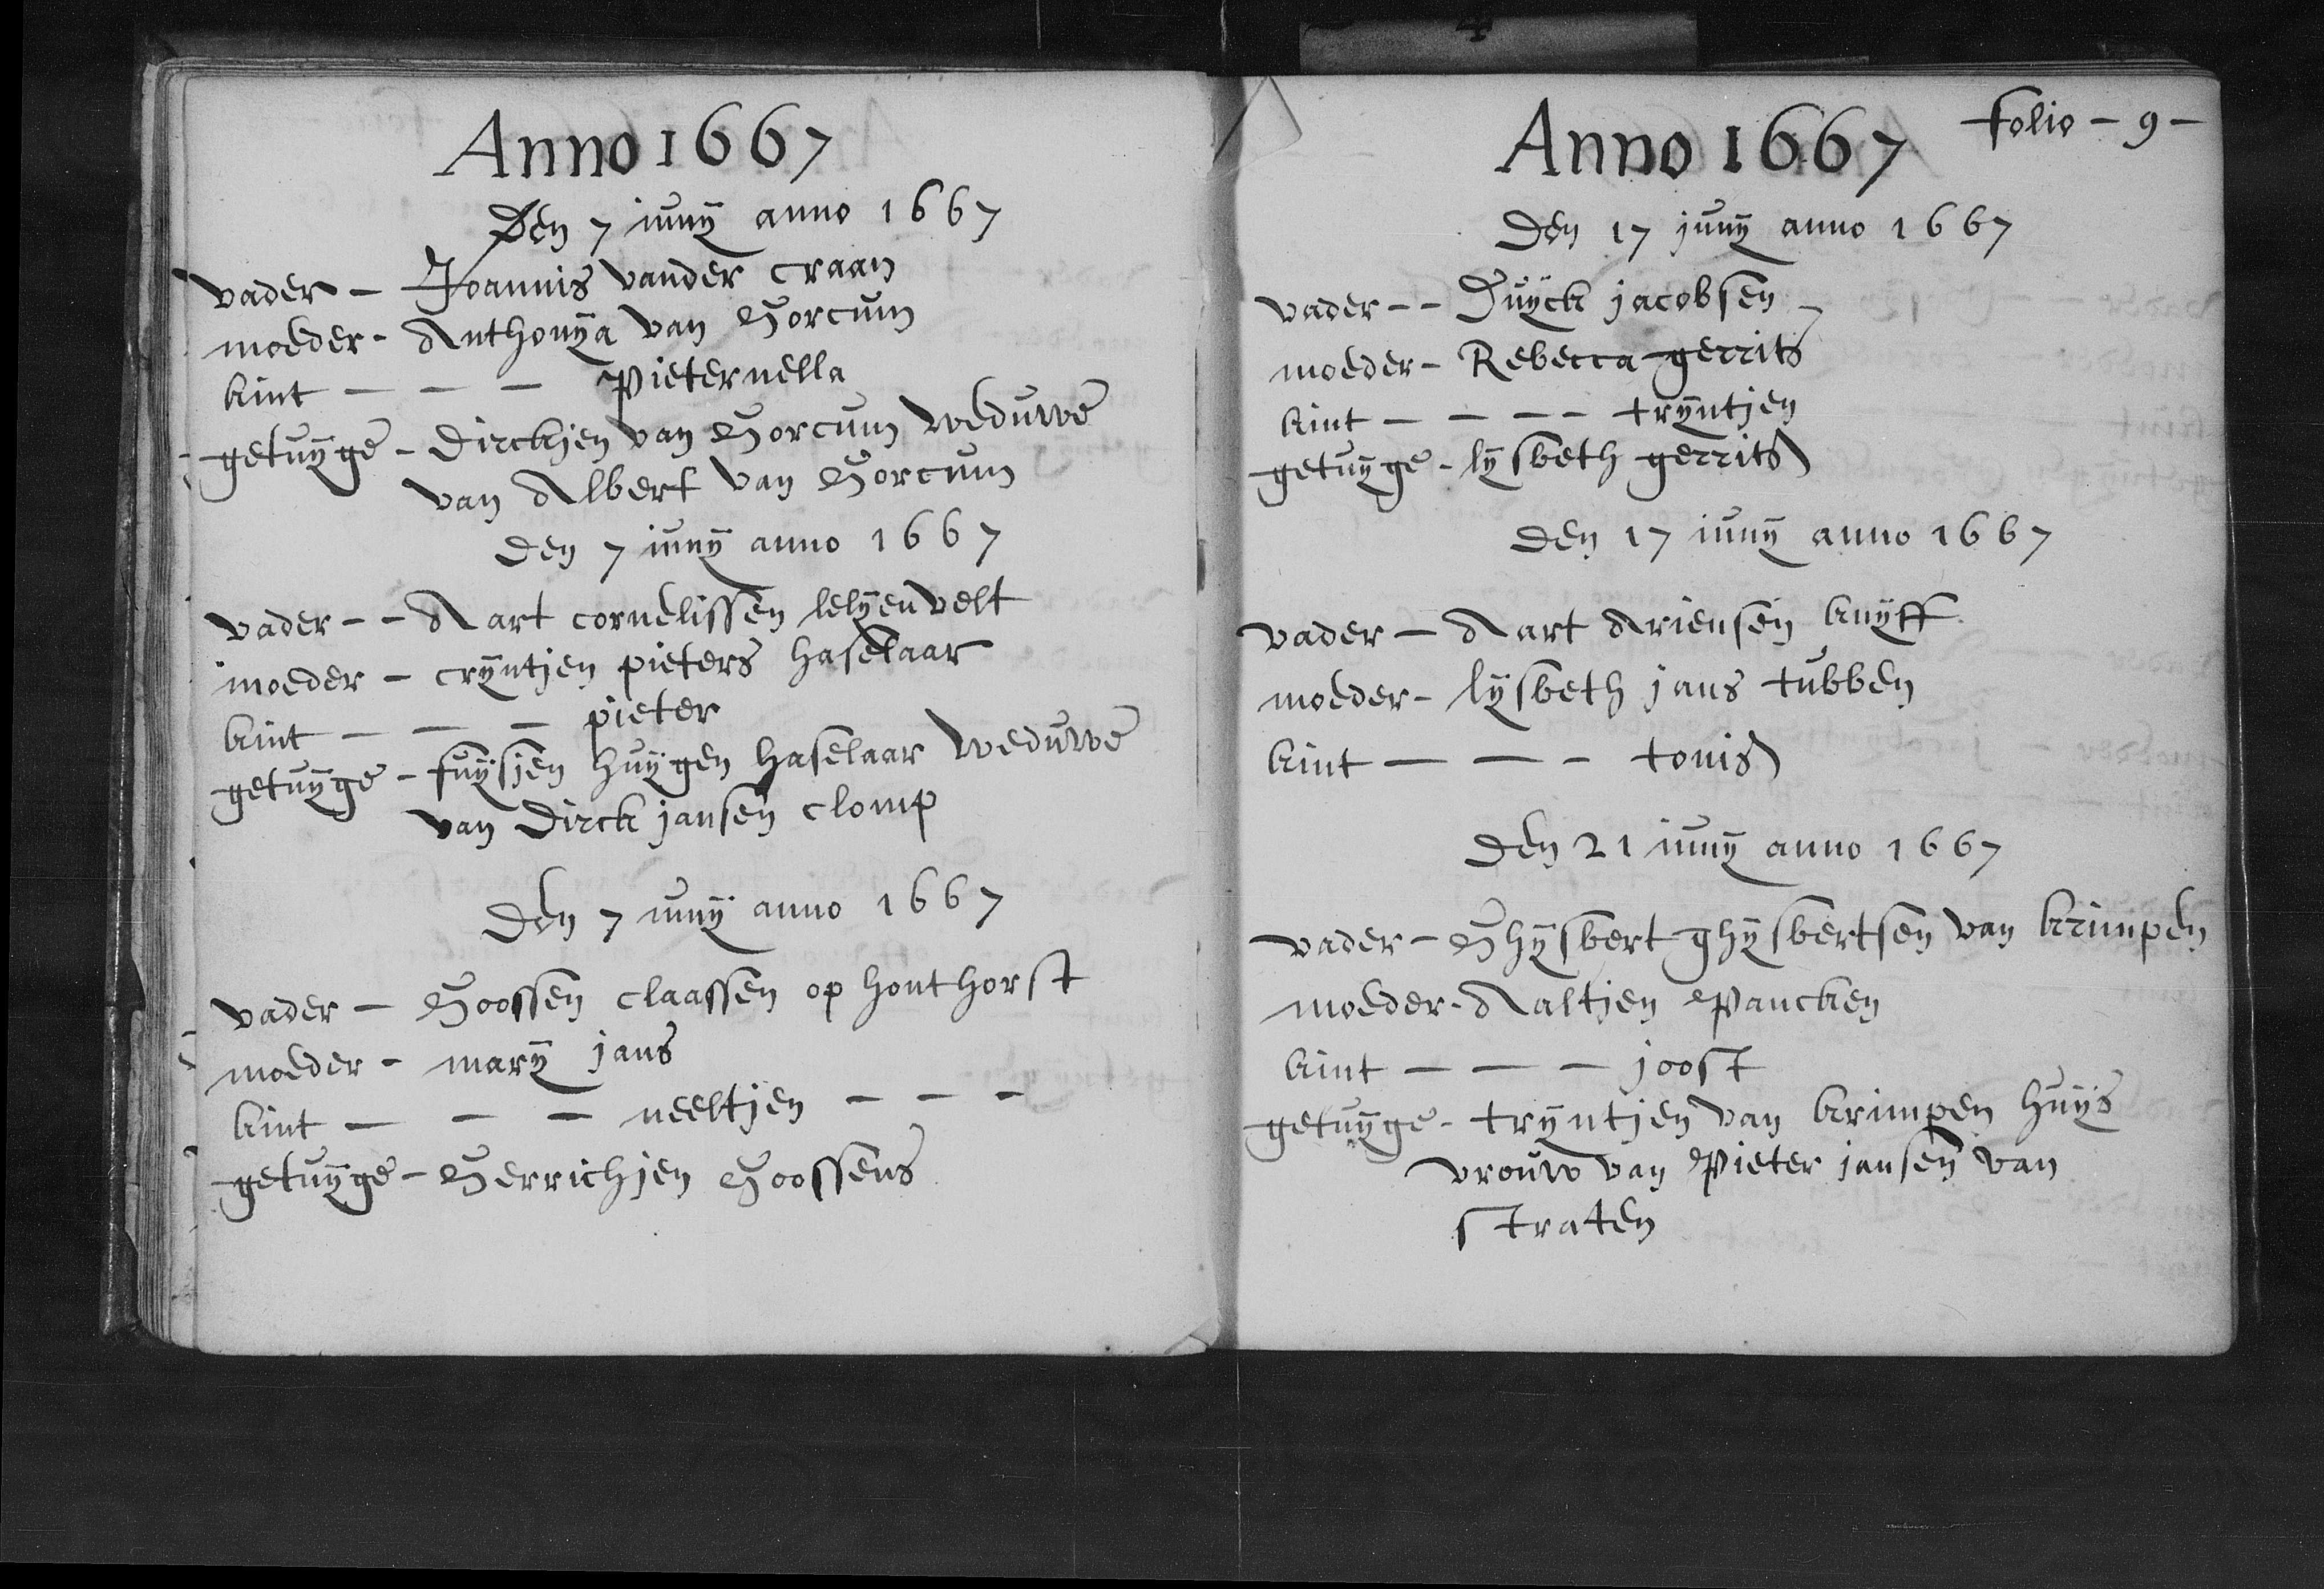 Anno 1667
Den 7 iunij anno 1667
vader - Joannis vander craan
moeder - Anthonija van Gorcum
kint - - - Pieternella
getuijge - Dirckjen van Gorcum weduwe
van Albert van Gorcum
Den 7 iunij anno 1667
vader - - Aart cornelissen lelijenvelt
moeder - crijntjen pieters haselaar
kint - - - pieter
getuijge - fuijsjen huijgen haselaar weduwe
van Dirck jansen clomp
Den 7 iunij anno 1667
vader - Goossen claassen op honthorst
moeder - marij jans
kint - - - neeltjen - - -
getuijge - Gerrichjen Goossens
folio - 9 -
Anno 1667
Den 17 junij anno 1667
vader - - Duijck jacobsen -
moeder - Rebecca gerrits
kint - - - - trijntjen
getuijge - lijsbeth gerrits
Den 17 iunij anno 1667
vader - Aart Ariensen knijff
moeder - lijsbeth jans tubben
kint - - - tonis
Den 21 iunij anno 1667
vader - Ghijsbert ghijsbertsen van krimpen
moeder - Aaltjen Pancken
kint - - - joost
getuijge - trijntjen van krimpen huijs
vrouw van Pieter jansen van
straten